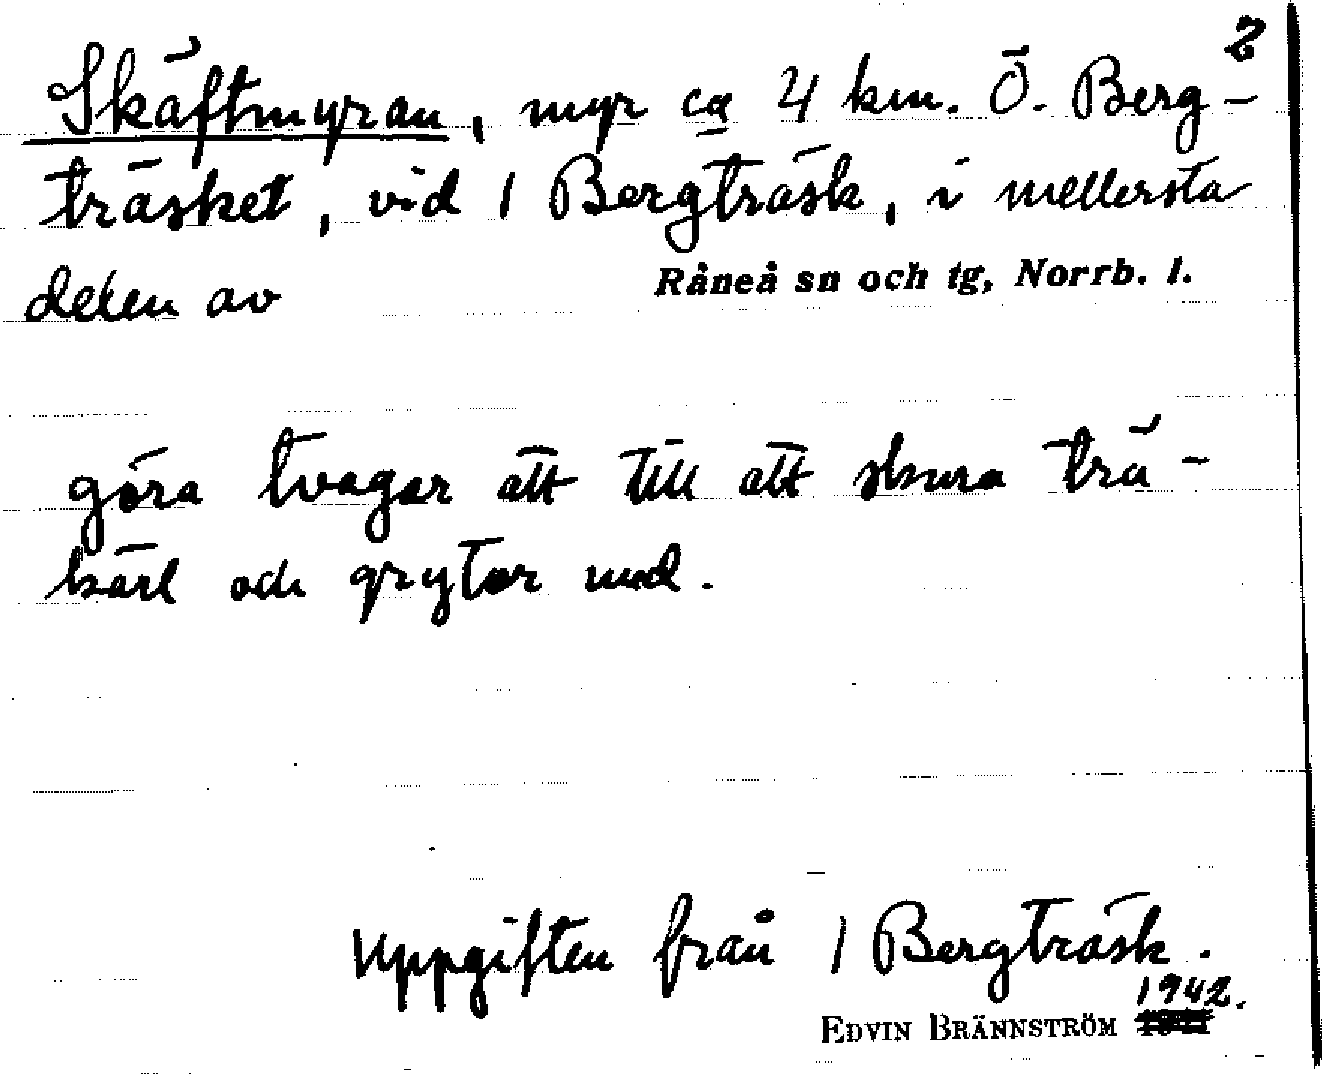 2
Skäftmyran, myr ca 4 km. Ö. Berg-
träsket, vid 1 Bergträsk, i mellersta
delen av Råneå sn och tg, Norrb. l.
göra tvagor att till att skura trä-
kärl och grytor med.
Uppgiften från 1 Bergträsk.
1942.
EDVIN BRÄNNSTRÖM